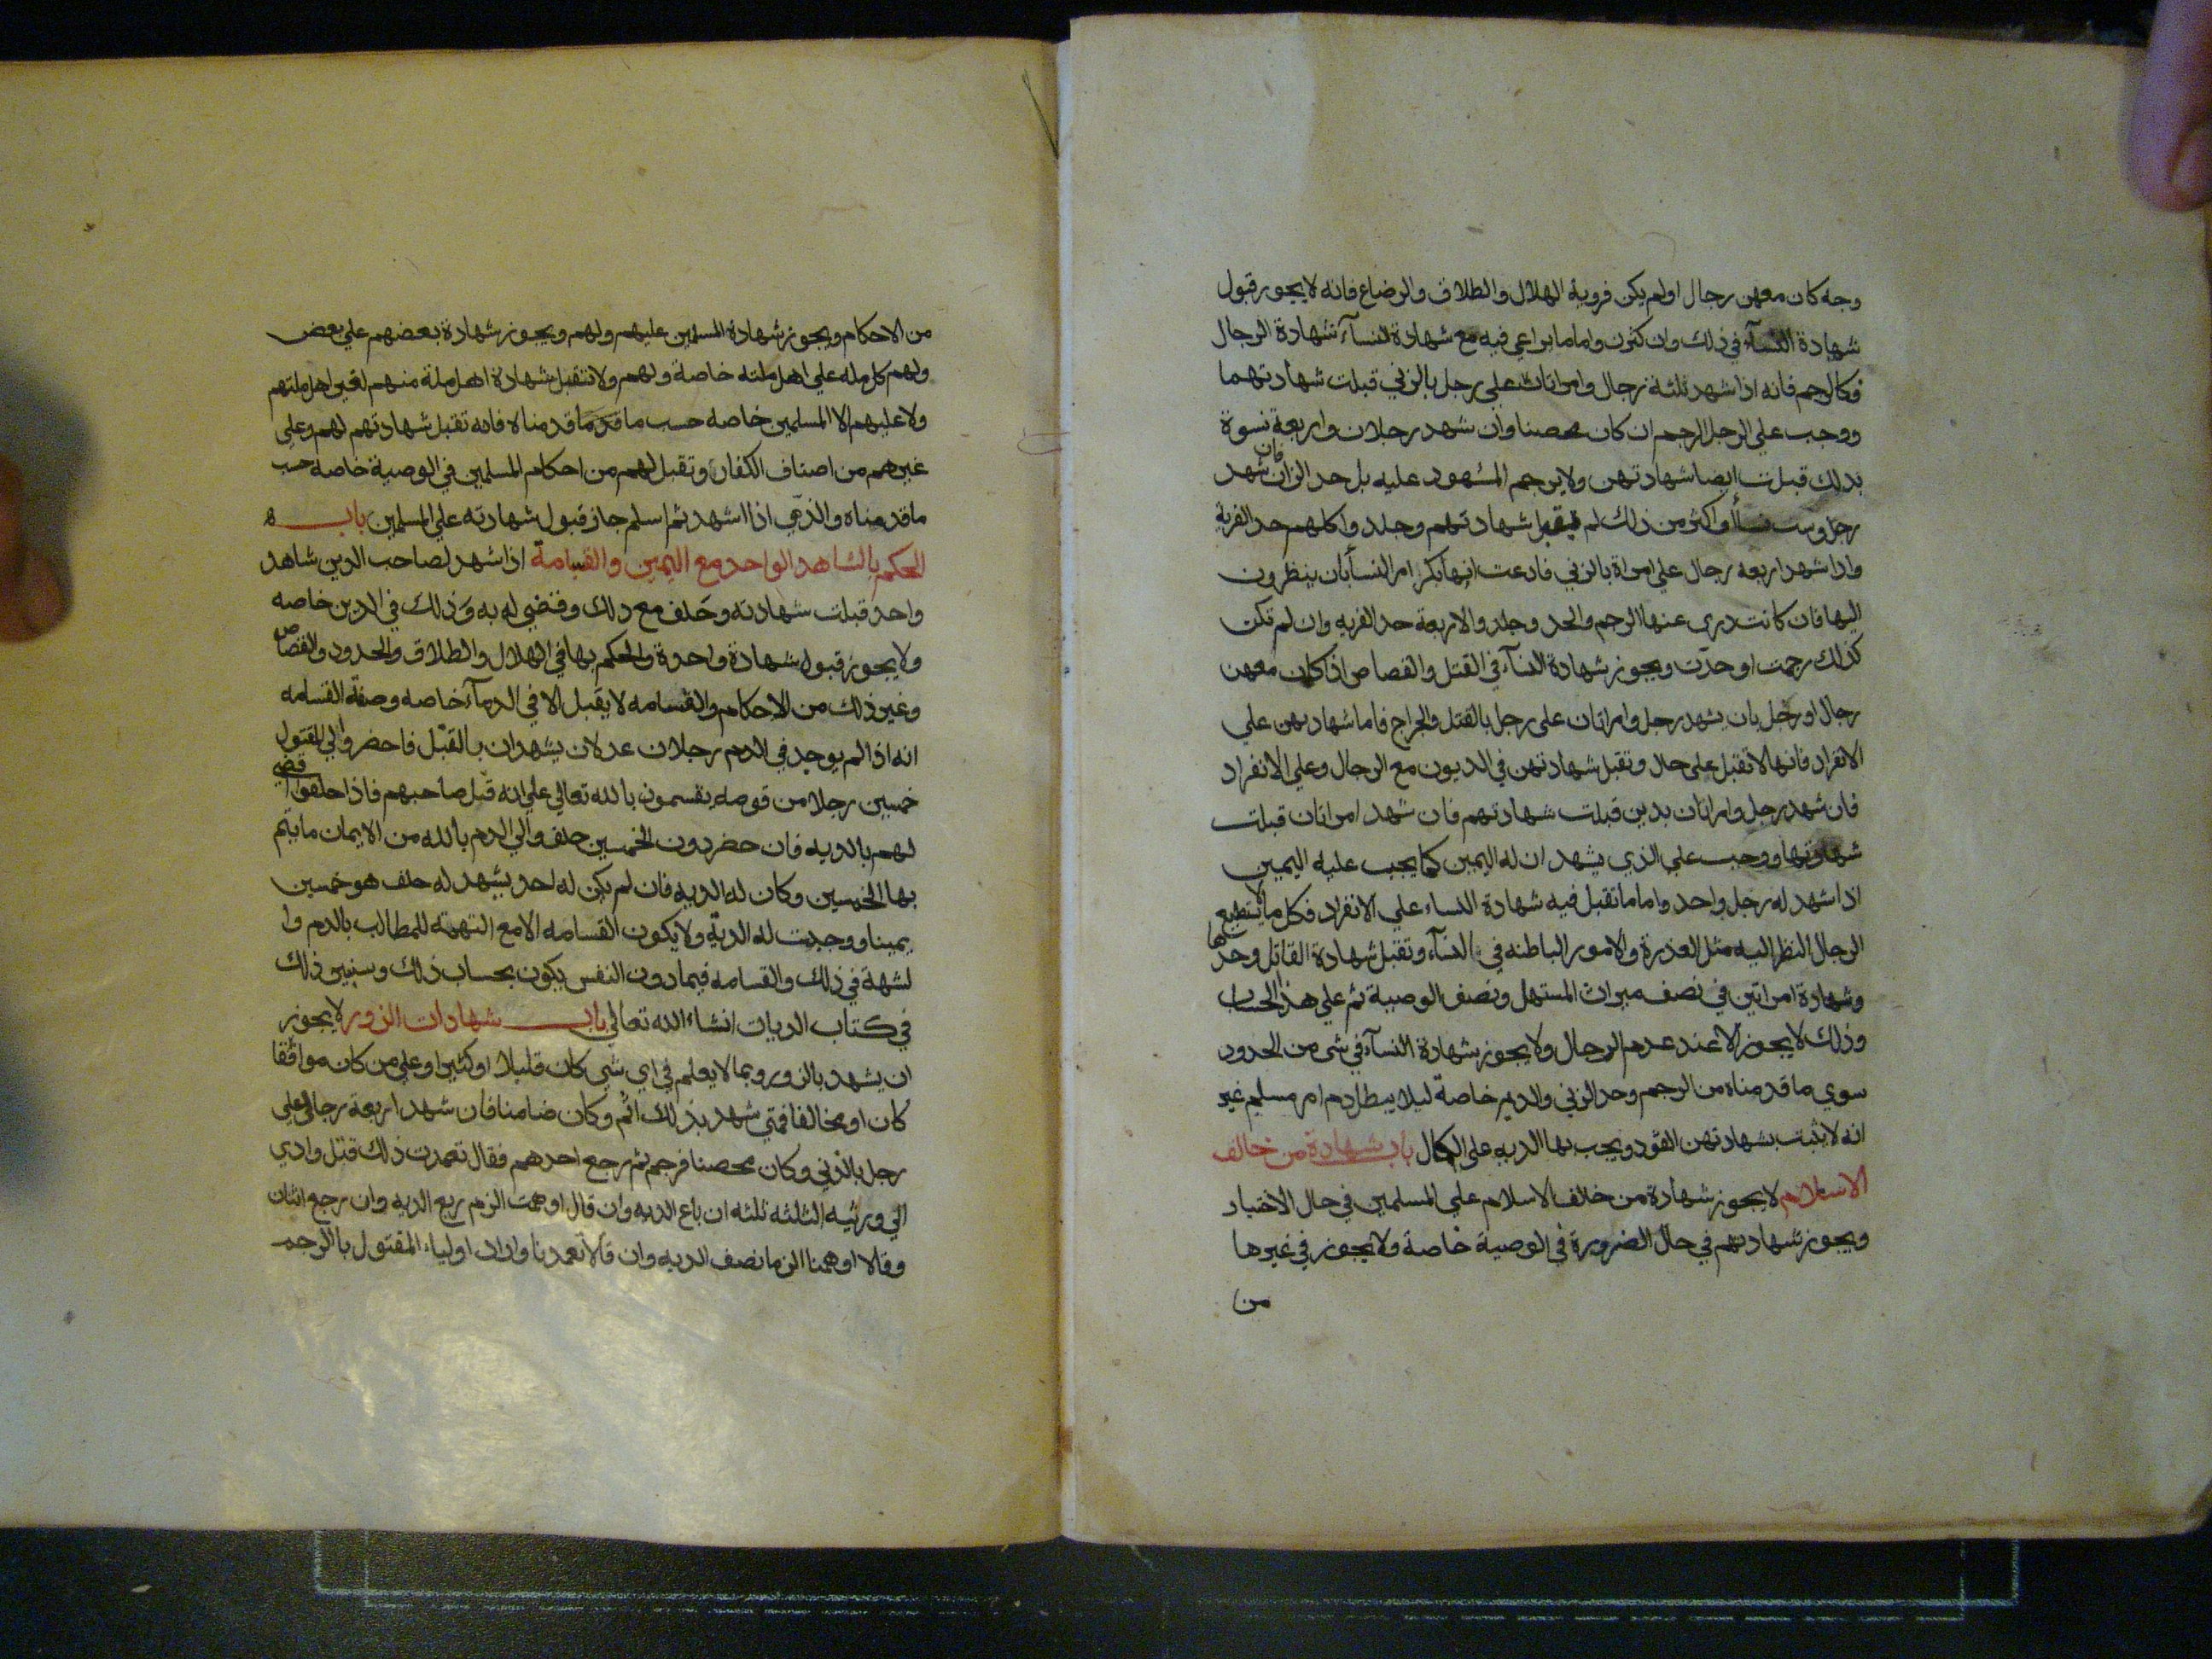 وجه كان معهن رجال او لم يكن فروية الهلال والطلاق والرضاع فانه لا يجوز قبول
شهادة النسآء في ذلك وان كثرن واما ما يراعي فيه مع شهادة النسآء شهادة الرجال
فكالرجم فانه اذا شهد ثلثة رجال وامراتان علي رجل بالزني قبلت شهادتهما
ووجب علي الرجل الرجم ان كان محصنا وان شهد رجلان واربعة نسوة
بذلك قبلت ايضا شهادتهن ولا يرجم المشهود عليه بل حد الزان فان شهد
رجل وست نسأ او اكثر من ذلك لم تقبل شهادتهم وجلدوا كلهم حد الفرية
واذا شهد اربعه رجال علي امراة بالزني فادعت انها بكر امر النسأ بان ينظرون
اليها فان كانت دري عنها الرجم والحد وجلد والاربعة حد الفريه وان لم تكن
كذلك رجمت او حدت ويجوز شهادة النسآء في القتل والقصاص اذا كان معهن
رجال او رجل بان يشهد رجل وامراتان علي رجل بالقتل والجراح فاما شهادتهن علي
الانفراد فانها لا تقبل علي حال وتقبل شهادتهن في الديون مع الرجال وعلي الانفراد
فان شهد رجل وامراتان بدين قبلت شهادتهم فان شهد امراتان قبلت
شهادتها ووجب علي الذي يشهد ان له اليمين كما يجب عليه اليمين
اذا شهد له رجل واحد واما ما تقبل فيه شهادة النساء علي الانفراد فكل ما لا يستطيع
الرجال النظر اليه مثل العذرة والامور الباطنه في النسآء وتقبل شهادة القائل وحدها
وشهادة امراتين في نصف ميراث المستهل ونصف الوصية ثم علي هذا الحساب
وذلك لا يجوز الا عند عدم الرجال ولا يجوز شهادة النسآء في شي من الحدود
سوي ما قدمناه من الرجم وحد الزني والدم خاصة ليلا يبطل دم امر مسلم غير
انه لا يثبت بشهادتهن القود ويجب بها الديه علي الكمال باب شهادة من خالف
الاسلام لا يجوز شهادة من خالف الاسلام علي المسلمين في حال الاختيار
ويجوز شهادتهم في حال الضرورة في الوصية خاصة ولا يجوز في غيرها
من
من الاحكام ويجوز شهادة المسلمين عليهم ولهم ويجوز شهادة بعضهم علي بعض
ولهم كل مله علي اهل ملته خاصة ولهم ولا تتقبل شهادة اهل ملة منهم لغير اهل ملتهم
ولا عليهم الا المسلمين خاصه حسب ما قدمنا لا فانه تقبل شهادتهم لهم وعلي
غيرهم من اصناف الكفار وتقبل لهم من احكام المسلمين في الوصية خاصه حسب
ما قدمناه والذمي اذا اشهد ثم اسلم جاز قبول شهادته علي المسلمين باب
الحكم بالشاهد الواحد مع اليمين والقسامة اذا شهد لصاحب الدين شاهد
واحد قبلت شهادته وحلف مع ذلك وقضي له به وذلك في الدين خاصه
ولا يجوز قبول شهادة واحدة والحكم بها في الهلال والطلاق والحدود والقصاص
وغير ذلك من الاحكام والقسامه لا يقبل الا في الدمآء خاصه وصفة القسامه
انه اذا لم يوجد في الدم رجلان عدلان يشهدان بالقتل فاحضر والي المقتول
خمسين رجلا من قومه يقسمون بالله تعالي علي انه قتل صاحبهم فاذا حلفوا قضي
لهم بالديه فان حضر دون الخمسين حلف والي الدم بالله من الايمان ما يتم
بها الخمسين وكان له الديه فان لم يكن له احد يشهد له حلف هو خمسين
يمينا ووجبت له الدية ولا يكون القسامه الا مع التهمة للمطالب بالدم وا
لشهة في ذلك والقسامه فيما دون النفس يكون بحساب ذلك وسنبين ذلك
في كتاب الديات انشاء الله تعالي باب شهادات الزور لا يجوز
ان يشهد بالزور وبما لا يعلم في اي شي كان قليلا او كثيرا وعلي من كان موافقا
كان او مخالفا فمتي شهد بذلك اثم وكان ضامنا فان شهد اربعة رجال علي
رجل بالزني وكان محصنا فرجم ثم رجع احدهم فقال تعمدت ذلك قتل وادي
الي ورثيه الثلثه ثلثه ارباع الديه وان قال اوهمت الزم ربع الديه وان رجع اثنان
وقالا اوهمنا الزما نصف الديه وان قالا تعمدنا واراد اولياء المقتول بالرجم